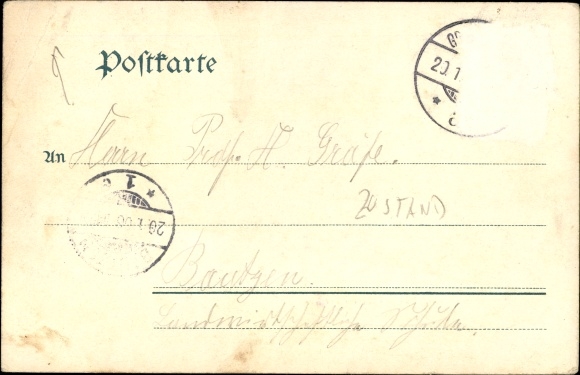 Postkarte
An Herrn Prof. H. Gräfe.
ZUSTAND
Bautzen.
Landwirtschaftliche Schule.
20.1
* 1
20.1.00